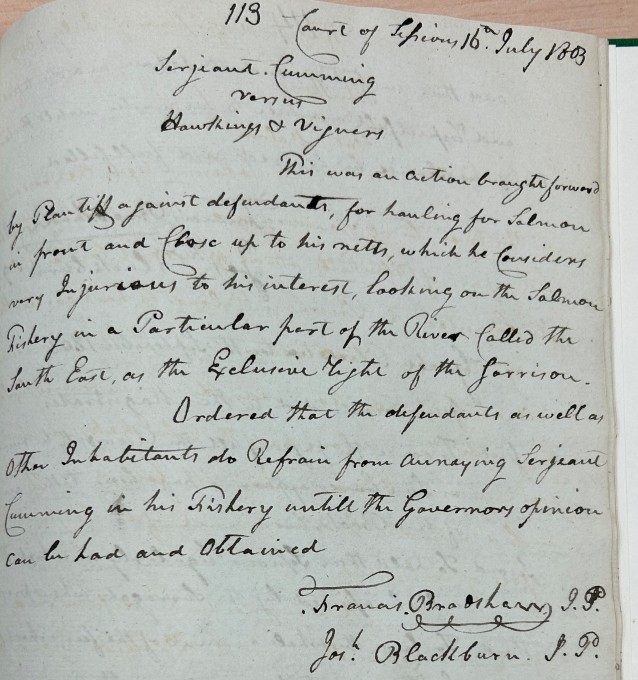 113
Court of Sessions 16th July 1803
Serjeant Cumming
versus
Hawkings & Vigvers
This was an action brought forward
by Plantiff against defendants, for hauling for Salmon
in front and Close up to his netts, which he Considers
very Injurious to his interest, looking on the Salmon
Fishery in a Particular part of the River Called the
South East, as the Exclusive right of the Garrison.
Ordered that the defendants as well as
Other Inhabitants do Refrain from annoying Serjeant
Cumming in his Fishery untill the Governors opinion
can be had and Obtained
Francis Bradshaw J.P.
Josh Blackburn. J.P.